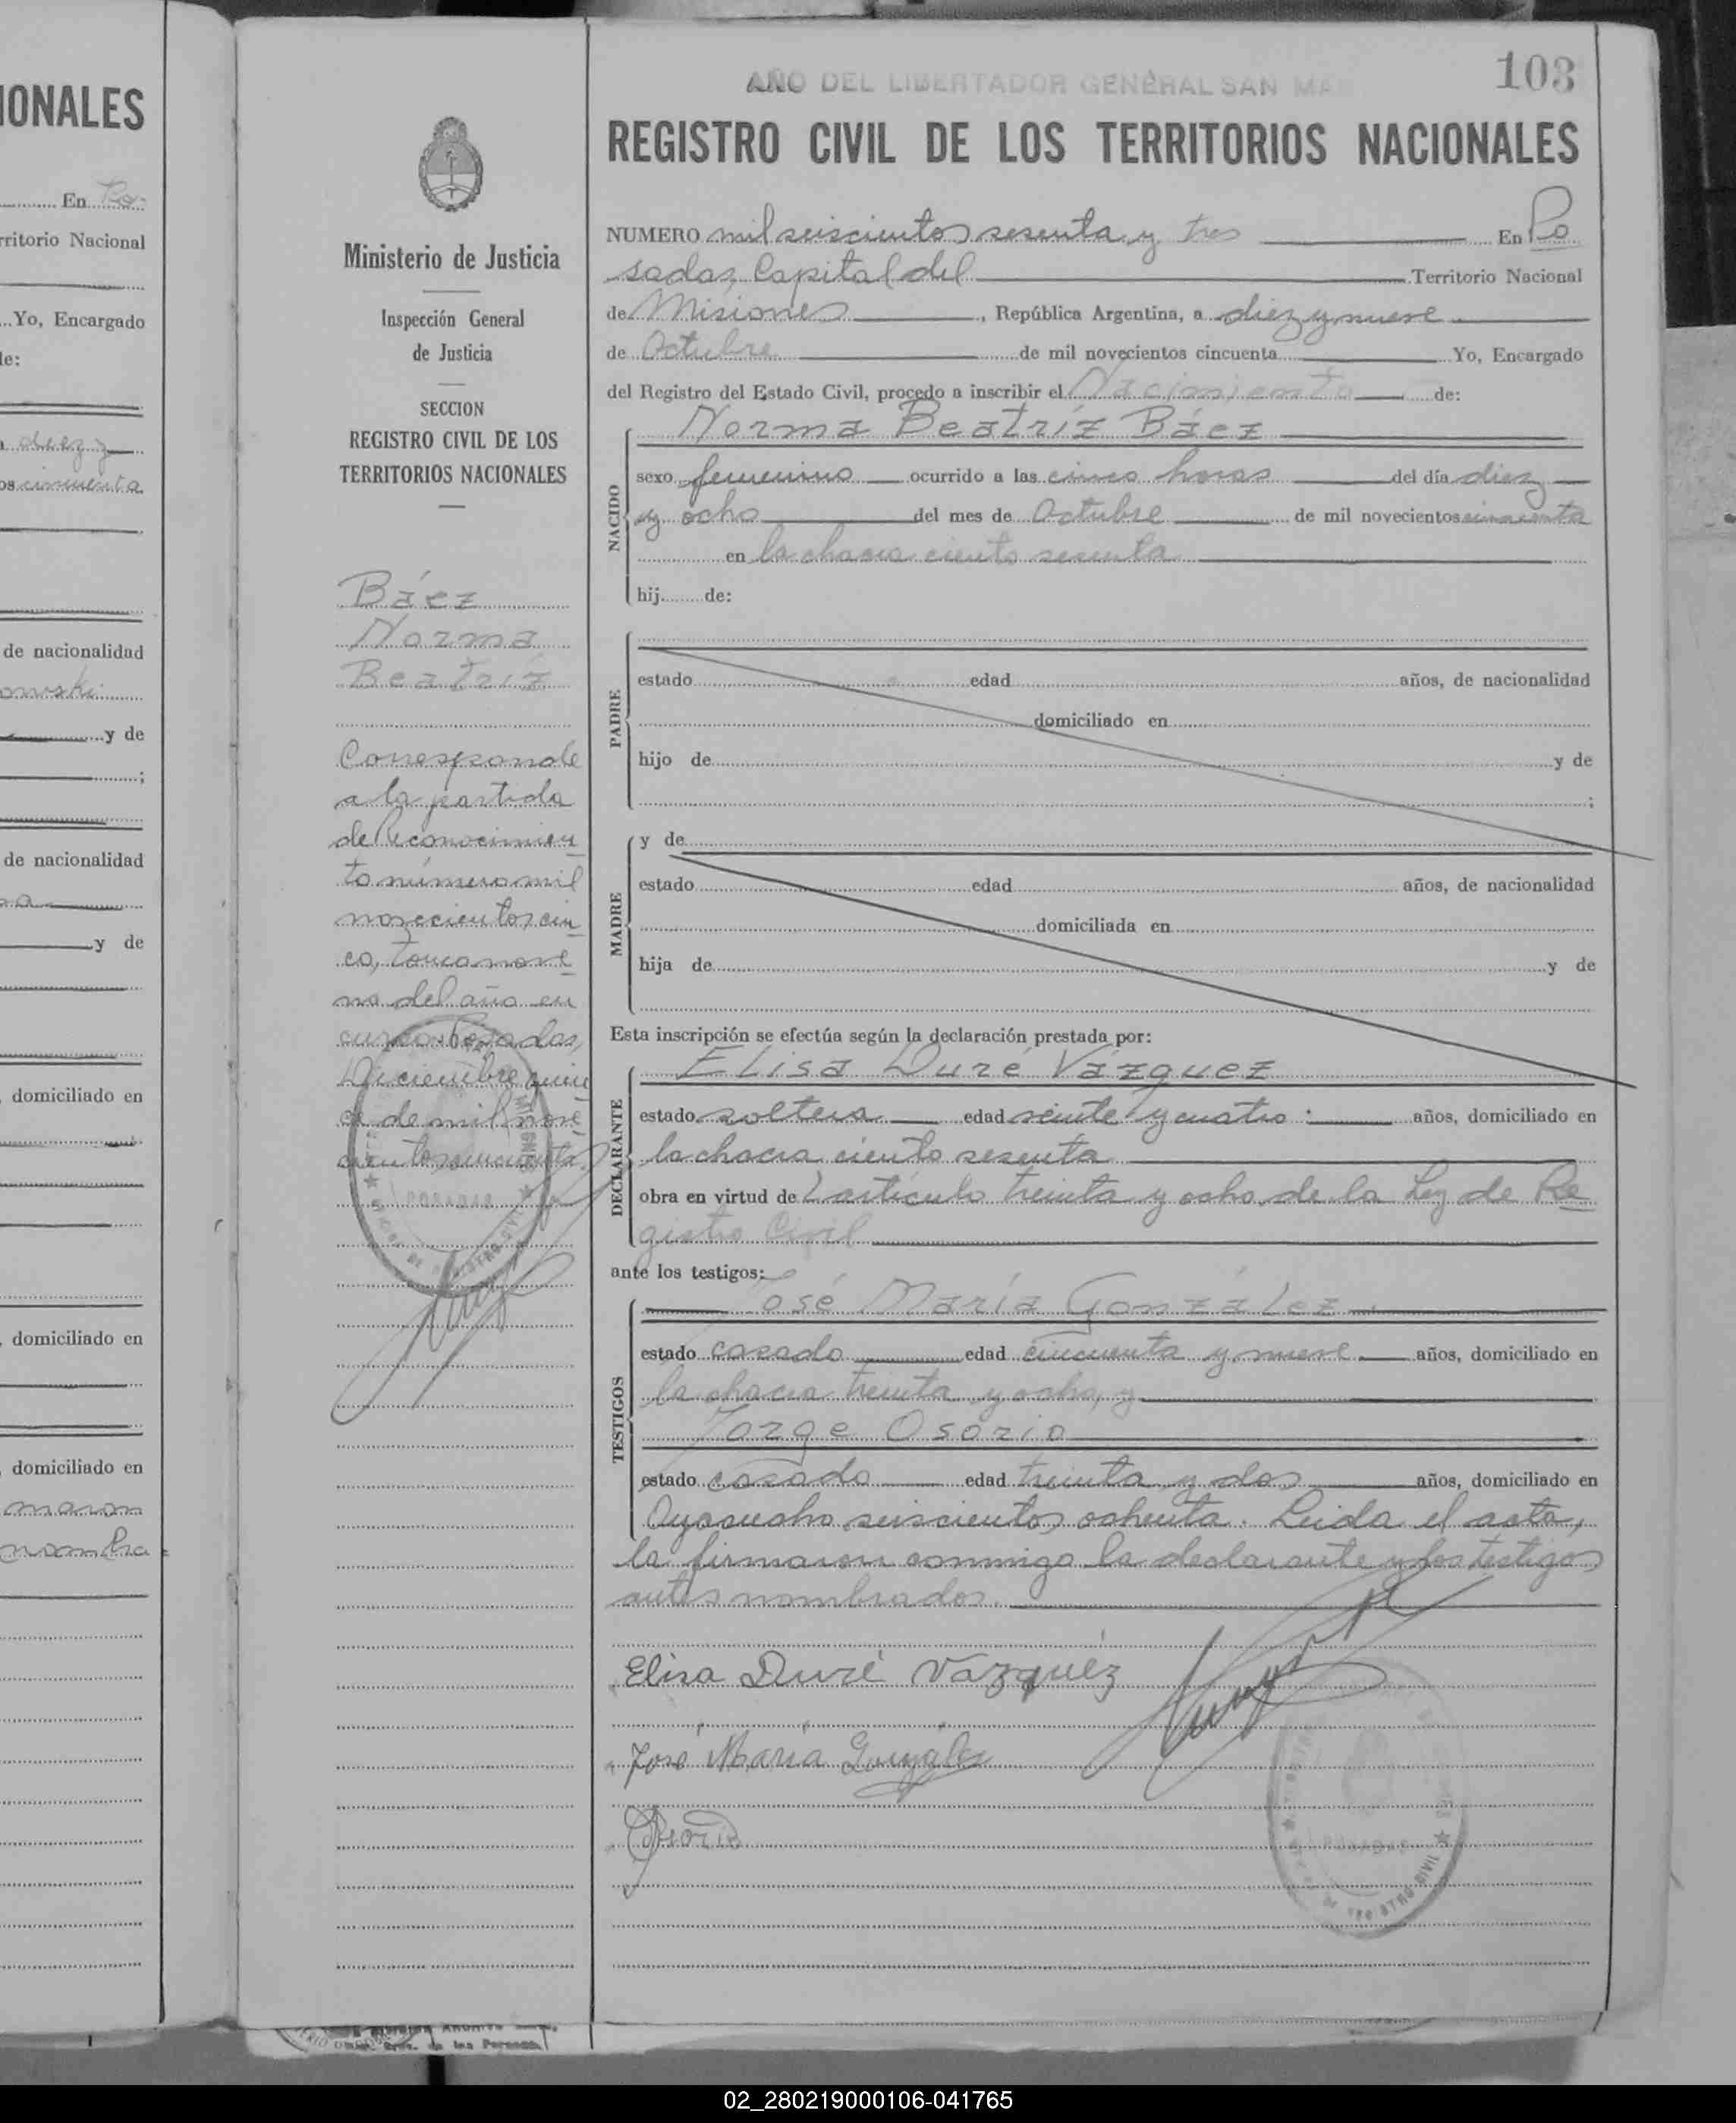 IONALES
En Po-
rritorio Nacional
Yo, Encargado
le:
diez y
os cincuenta
de nacionalidad
owski
y de
;
de nacionalidad
y de
domiciliado en
, domiciliado en
, domiciliado en
Ministerio de Justicia
Inspección General
de Justicia
SECCION
REGISTRO CIVIL DE LOS
TERRITORIOS NACIONALES
Báez
Norma
Beatríz
Corresponde
a la partida
de Reconocimien
to número mil
novecientos cin
co, tomo nove
no del año en
curso. Posadas,
Diciembre quin
ce de mil nove
cientos cincuenta.
POSADAS
AÑO DEL LIBERTADOR GENERAL SAN MAR
103
REGISTRO CIVIL DE LOS TERRITORIOS NACIONALES
NUMERO mil seiscientos sesenta y tres En Po
sadas, Capital del Territorio Nacional
de Misiones, República Argentina, a diez y nueve
de Octubre de mil novecientos cincuenta Yo, Encargado
del Registro del Estado Civil, procedo a inscribir el Nacimiento de:
Norma Beatríz Báez
NACIDO
sexo femenino ocurrido a las cinco horas del día diez
y ocho del mes de Octubre de mil novecientos cincuenta
en la chacra ciento sesenta
hij de:
PADRE
estado edad años, de nacionalidad
domiciliado en
hijo de y de
;
MADRE
y de
estado edad años, de nacionalidad
domiciliada en
hija de y de
Esta inscripción se efectúa según la declaración prestada por:
DECLARANTE
Elisa Duré Vázquez
estado soltera edad veinte y cuatro años, domiciliado en
la chacra ciento sesenta
obra en virtud de l artículo treinta y ocho de la Ley de Re
gistro Civil
ante los testigos:
TESTIGOS
José María González
estado casado edad cincuenta y nueve años, domiciliado en
la chacra treinta y ocho, y
Jorge Osorio
estado casado edad treinta y dos años, domiciliado en
Ayacucho seiscientos ochenta. Leida el acta,
la firmaron conmigo la declarante y los testigos
antes nombrados.
Elisa Duré Vázquéz
José María González
Osorio
POSADAS
REGISTRO CIVIL
02_280219000106-041765